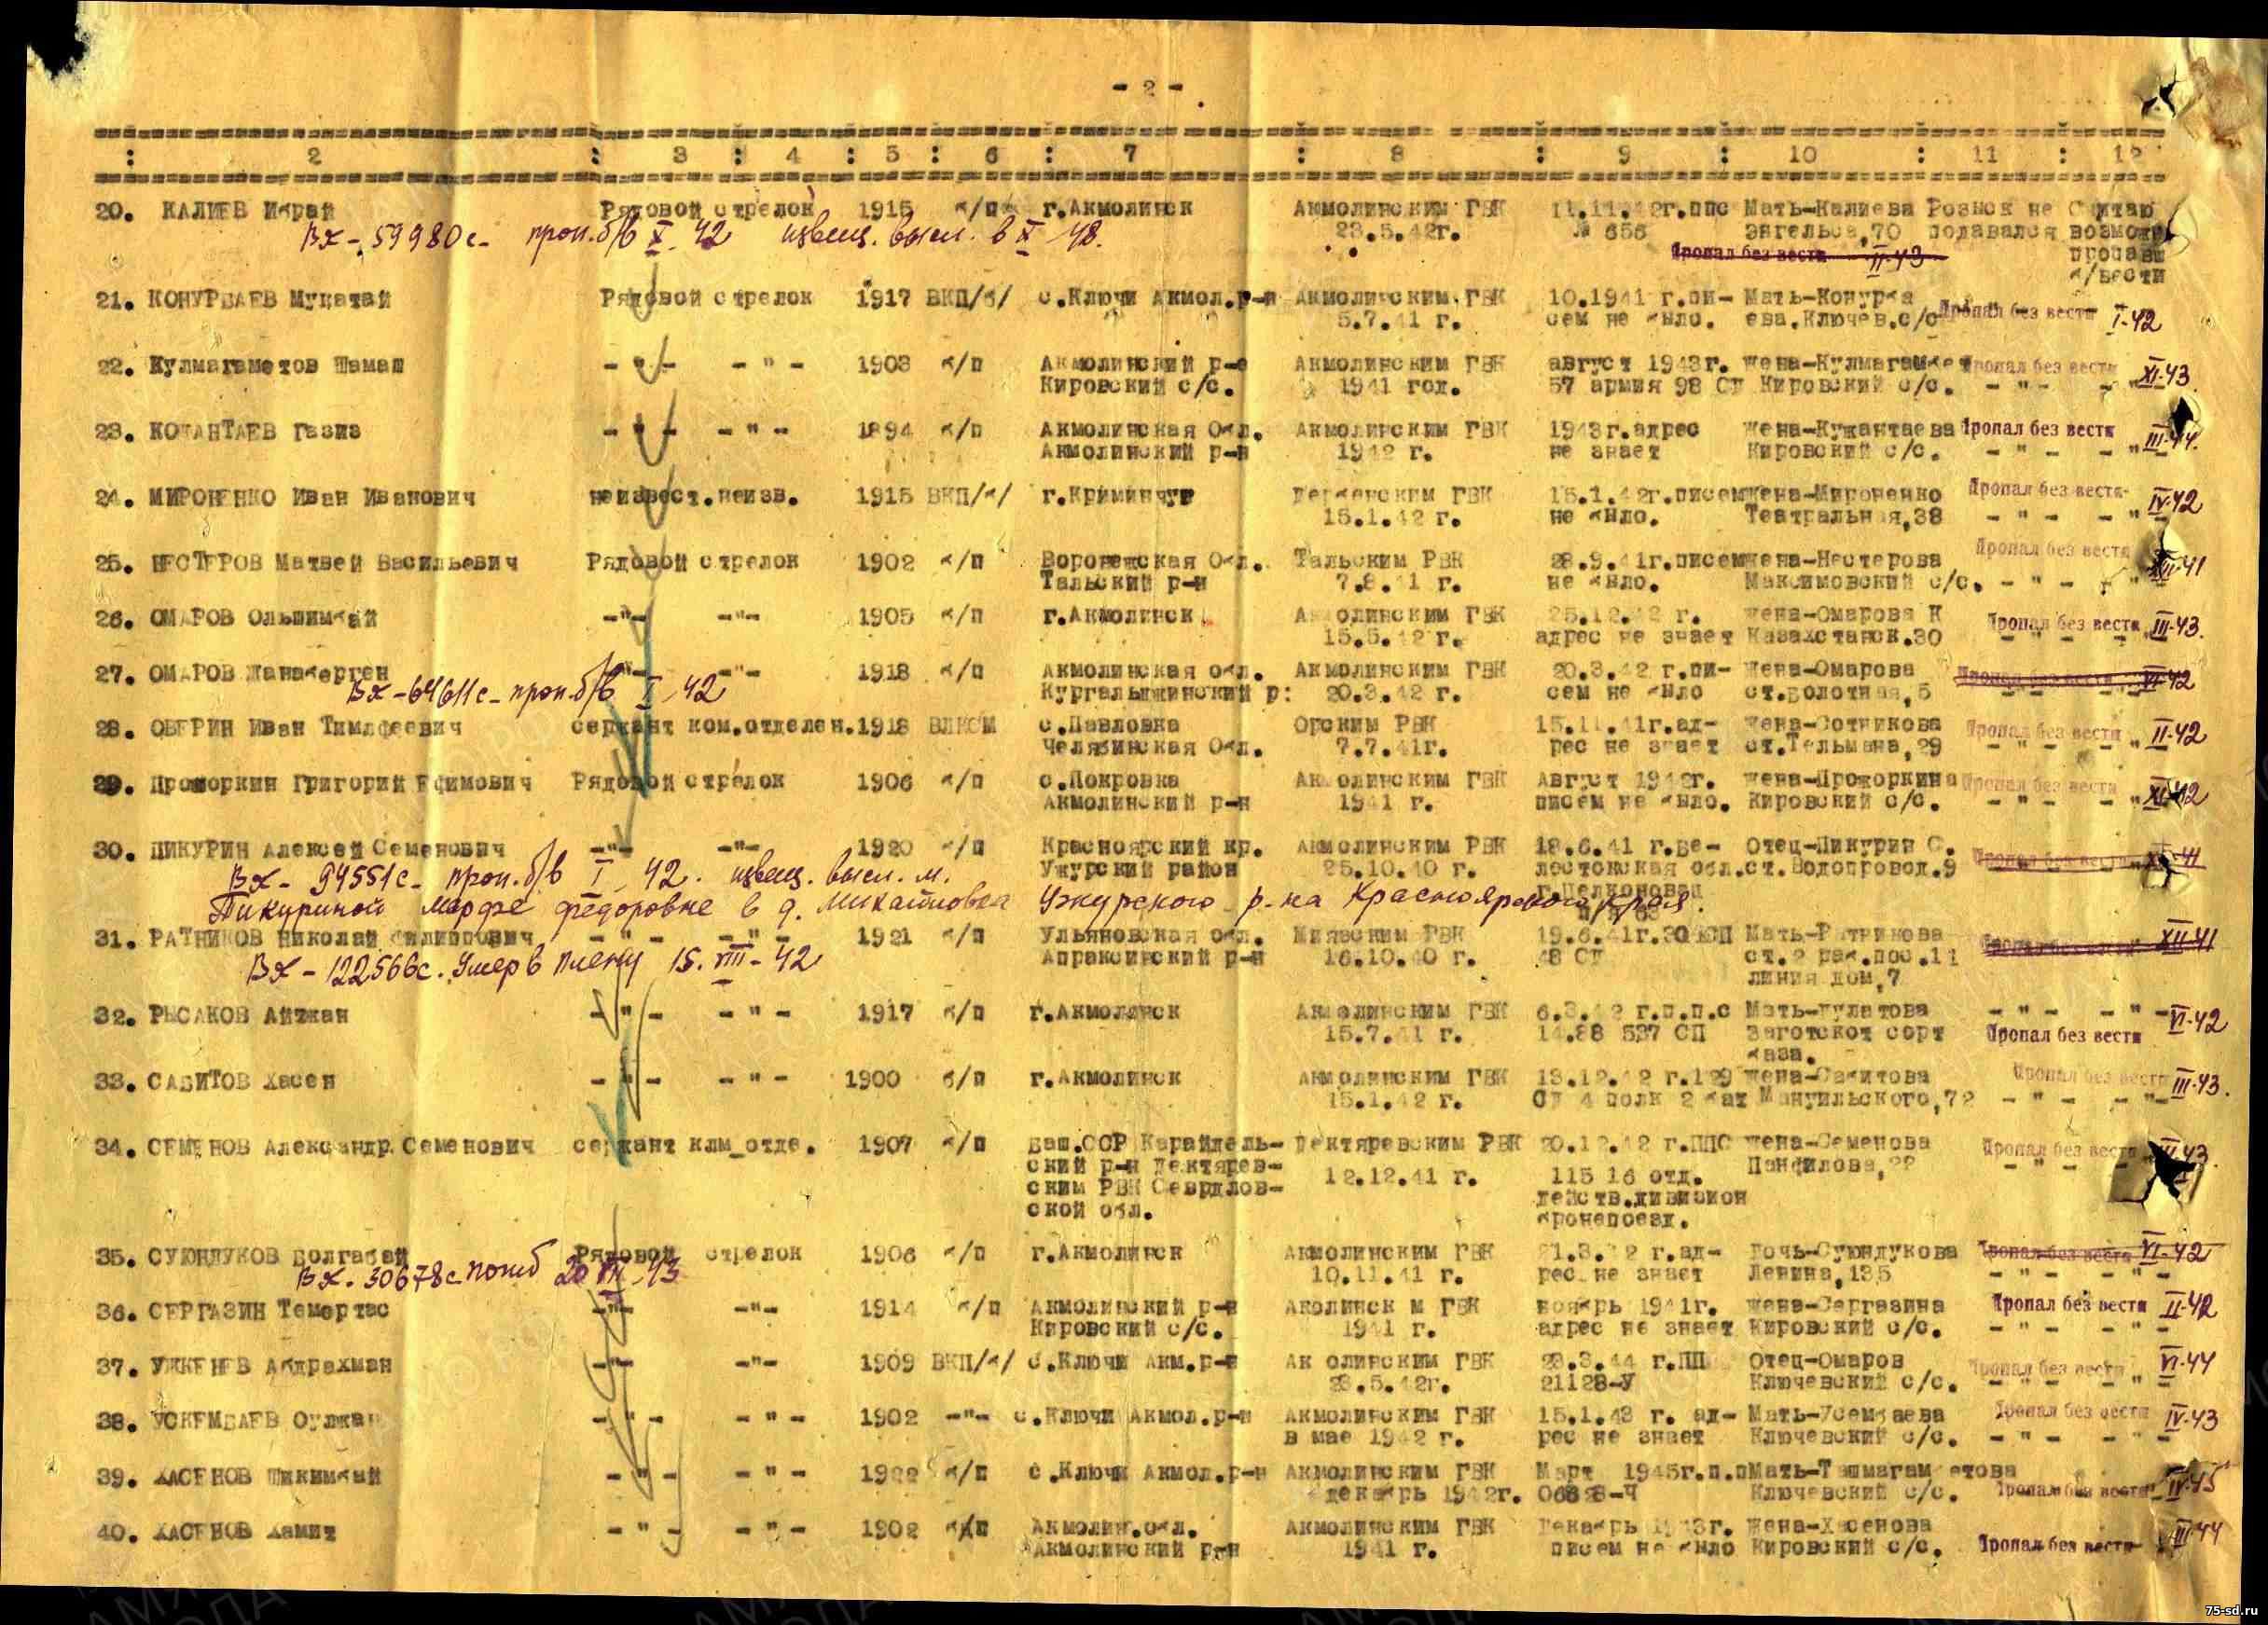 - 2 -
: 2 : 3 : 4 : 5 : 6 : 7 : 8 : 9 : 10 : 11 : 12
20. КАЛИЕВ Ибрай Рядовой стрелок 1915 б/п г.Акмолинск Акмолинским ГВК 11.11.42г.ппс Мать-Калиева Розыск не Считаю
23.5.42г. № 656 Энгельса,70 подавался возможн
Вх-59980с- проп.б/в X-42 извещ. высл. в X-48.
Пропал без вести II-43 пропавш
б/вести
21. КОНУРБАЕВ Мукатай Рядовой стрелок 1917 ВКП/б/ с.Ключи Акмол.р-н Акмолинским ГВК 10.1941 г.пи- Мать-Конурба
5.7.41 г. сем не было. ева.Ключев.с/с Пропал без вести I-42
22. Кулмагаметов Шамаш - " - - " - 1903 б/п Акмолинский р-н Акмолинским ГВК август 1943г. жена-Кулмагамбет Пропал без вести XI-43
Кировский с/с. 1941 год. 57 армия 98 СП Кировский с/с. - " - - " -
23. КОЖАНТАЕВ Газиз - " - - " - 1894 б/п Акмолинская Обл. Акмолинским ГВК 1943г.адрес жена-Кужантаева Пропал без вести III-44.
Акмолинский р-н 1942 г. не знает Кировский с/с. - " - - " -
24. МИРОНЕНКО Иван Иванович неизвест.неизв. 1915 ВКП/б/ г.Криминчуг ГВК 15.1.42г.писем жена-Мироненко Пропал без вести IV-42
15.1.42 г. не было. Театральная,38 - " - - " -
25. НЕСТЕРОВ Матвей Васильевич Рядовой стрелок 1902 б/п Воронежская Обл. Тальским РВК 28.9.41г.писем жена-Нестерова Пропал без вести XII-41
Тальский р-н 7.8.41 г. не было. Максимовский с/с. - " - - " -
26. ОМАРОВ Ольшимбай -"- -"- 1905 б/п г.Акмолинск Акмолинским ГВК 25.12.42 г. жена-Омарова К Пропал без вести III-43.
15.5.42 г. адрес не знает Казахстанск.30 - " - - " -
27. ОМАРОВ Жанаберген -"- -"- 1918 б/п Акмолинская обл. Акмолинским ГВК 20.3.42 г.пи- жена-Омарова Пропал без вести VI-42
Вх-64611с- проп.б/в I-42 Кургальжинский р: 20.3.42 г. сем не было ст.Болотная,5
28. ОВЕРИН Иван Тимлфеевич сержант ком.отделен.1918 ВЛКСМ с.Павловка Орским РВК 15.11.41г.ад- жена-Сотникова Пропал без вести II-42
Челябинская Обл. 7.7.41г. рес не знает ст.Тельмана,29 - " - - " -
29. Прожоркин Григорий Ефимович Рядовой стрелок 1906 б/п с.Покровка Акмолинским ГВК Август 1942г. жена-Прожоркина Пропал без вести XI-42
Акмолинский р-н 1941 г. писем не было. Кировский с/с. - " - - " -
30. ПИКУРИН Алексей Семенович -"- -"- 1920 б/п Красноярский кр. Акмолинским РВК 18.6.41 г.Бе- Отец-Пикурин С. Пропал без вести XII-41
Ужурский район 25.10.40 г. лостокская обл.ст.Водопровод.9
Вх- 94551с- проп.б/в I-42. извещ. высл. м.
Пикуриной Марфе Федоровне в д. Михайловка Ужурского р-на Красноярского края.
31. РАТНИКОВ Николай Филиппович - " - - " - 1921 б/п Ульяновская обл. РВК 19.6.41г.30 КСП Мать-Ратникова Пропал без вести XII-41
Апраксинский р-н 16.10.40 г. 48 СД ст.2 раб.пос.11
Вх-122566с. Умер в плену 15.VIII-42 линия дом,7
32. РЫСАКОВ Айтжан - " - - " - 1917 б/п г.Акмолинск Акмолинским ГВК 6.3.42 г.п.п.с Мать-Булатова - " - - " - VI-42
15.7.41 г. 14.88 537 СП Заготскот сорт Пропал без вести
база.
33. САБИТОВ Хасен - " - - " - 1900 б/п г.Акмолинск Акмолинским ГВК 13.12.42 г.129 жена-Сабитова Пропал без вести III-43.
15.1.42 г. СД 4 полк 2 бат Мануильского,72 - " - - " -
34. СЕМЕНОВ Александр Семенович сержант клм_отде. 1907 б/п Баш.ССР Карайдель- Дектяревским РВК 20.12.42 г.ППС жена-Семенова Пропал без вести
ский р-н Дектярев- 12.12.41 г. 115 16 отд. Панфилова,22
ским РВК Свердлов- действ.дивизион
ской обл. бронепоезд.
35. СУЮНДУКОВ Болгабай Рядовой стрелок 1906 б/п г.Акмолинск Акмолинским ГВК 21.3.42 г.ад- дочь-Суюндукова Пропал без вести VI-42
Вх-30678с погиб 20 VII-43 10.11.41 г. рес не знает Ленина,135 - " - - " -
36. СЕРГАЗИН Темертас -"- -"- 1914 б/п Акмолинский р-н Аколинск м ГВК ноябрь 1941г. жена-Сергазина Пропал без вести II-42
Кировский с/с. 1941 г. адрес не знает Кировский с/с. - " - - " -
37. УЖКЕНЕВ Абдрахман -"- -"- 1909 ВКП/б/ с.Ключи Акм.р-н Ак олинским ГВК 23.3.44 г.ПП Отец-Омаров Пропал без вести VI-44
23.5.42г. 21128-У Ключевский с/с. - " - - " -
38. УСКЕМБАЕВ Оулжан - " - - " - 1902 -"- с.Ключи Акмол.р-н Акмолинским ГВК 15.1.43 г. ад- Мать-Усембаева Пропал без вести IV-43
в мае 1942 г. рес не знает Ключевский с/с. - " - - " -
39. ХАСЕНОВ Шикимбай - " - - " - 1922 б/п с.Ключи Акмол.р-н Акмолинским ГВК Март 1945г.п.п Мать-Ташмагамбетова
декабрь 1942г. 06828-Ч Ключевский с/с. Пропал без вести IV-45
40. ХАСЕНОВ Хамит - " - - " - 1902 б/п Акмолин.обл. Акмолинским ГВК декабрь 1943г. жена-Хасенова
Акмолинский р-н 1941 г. писем не было Кировский с/с. Пропал без вести III-44
75-sd.ru